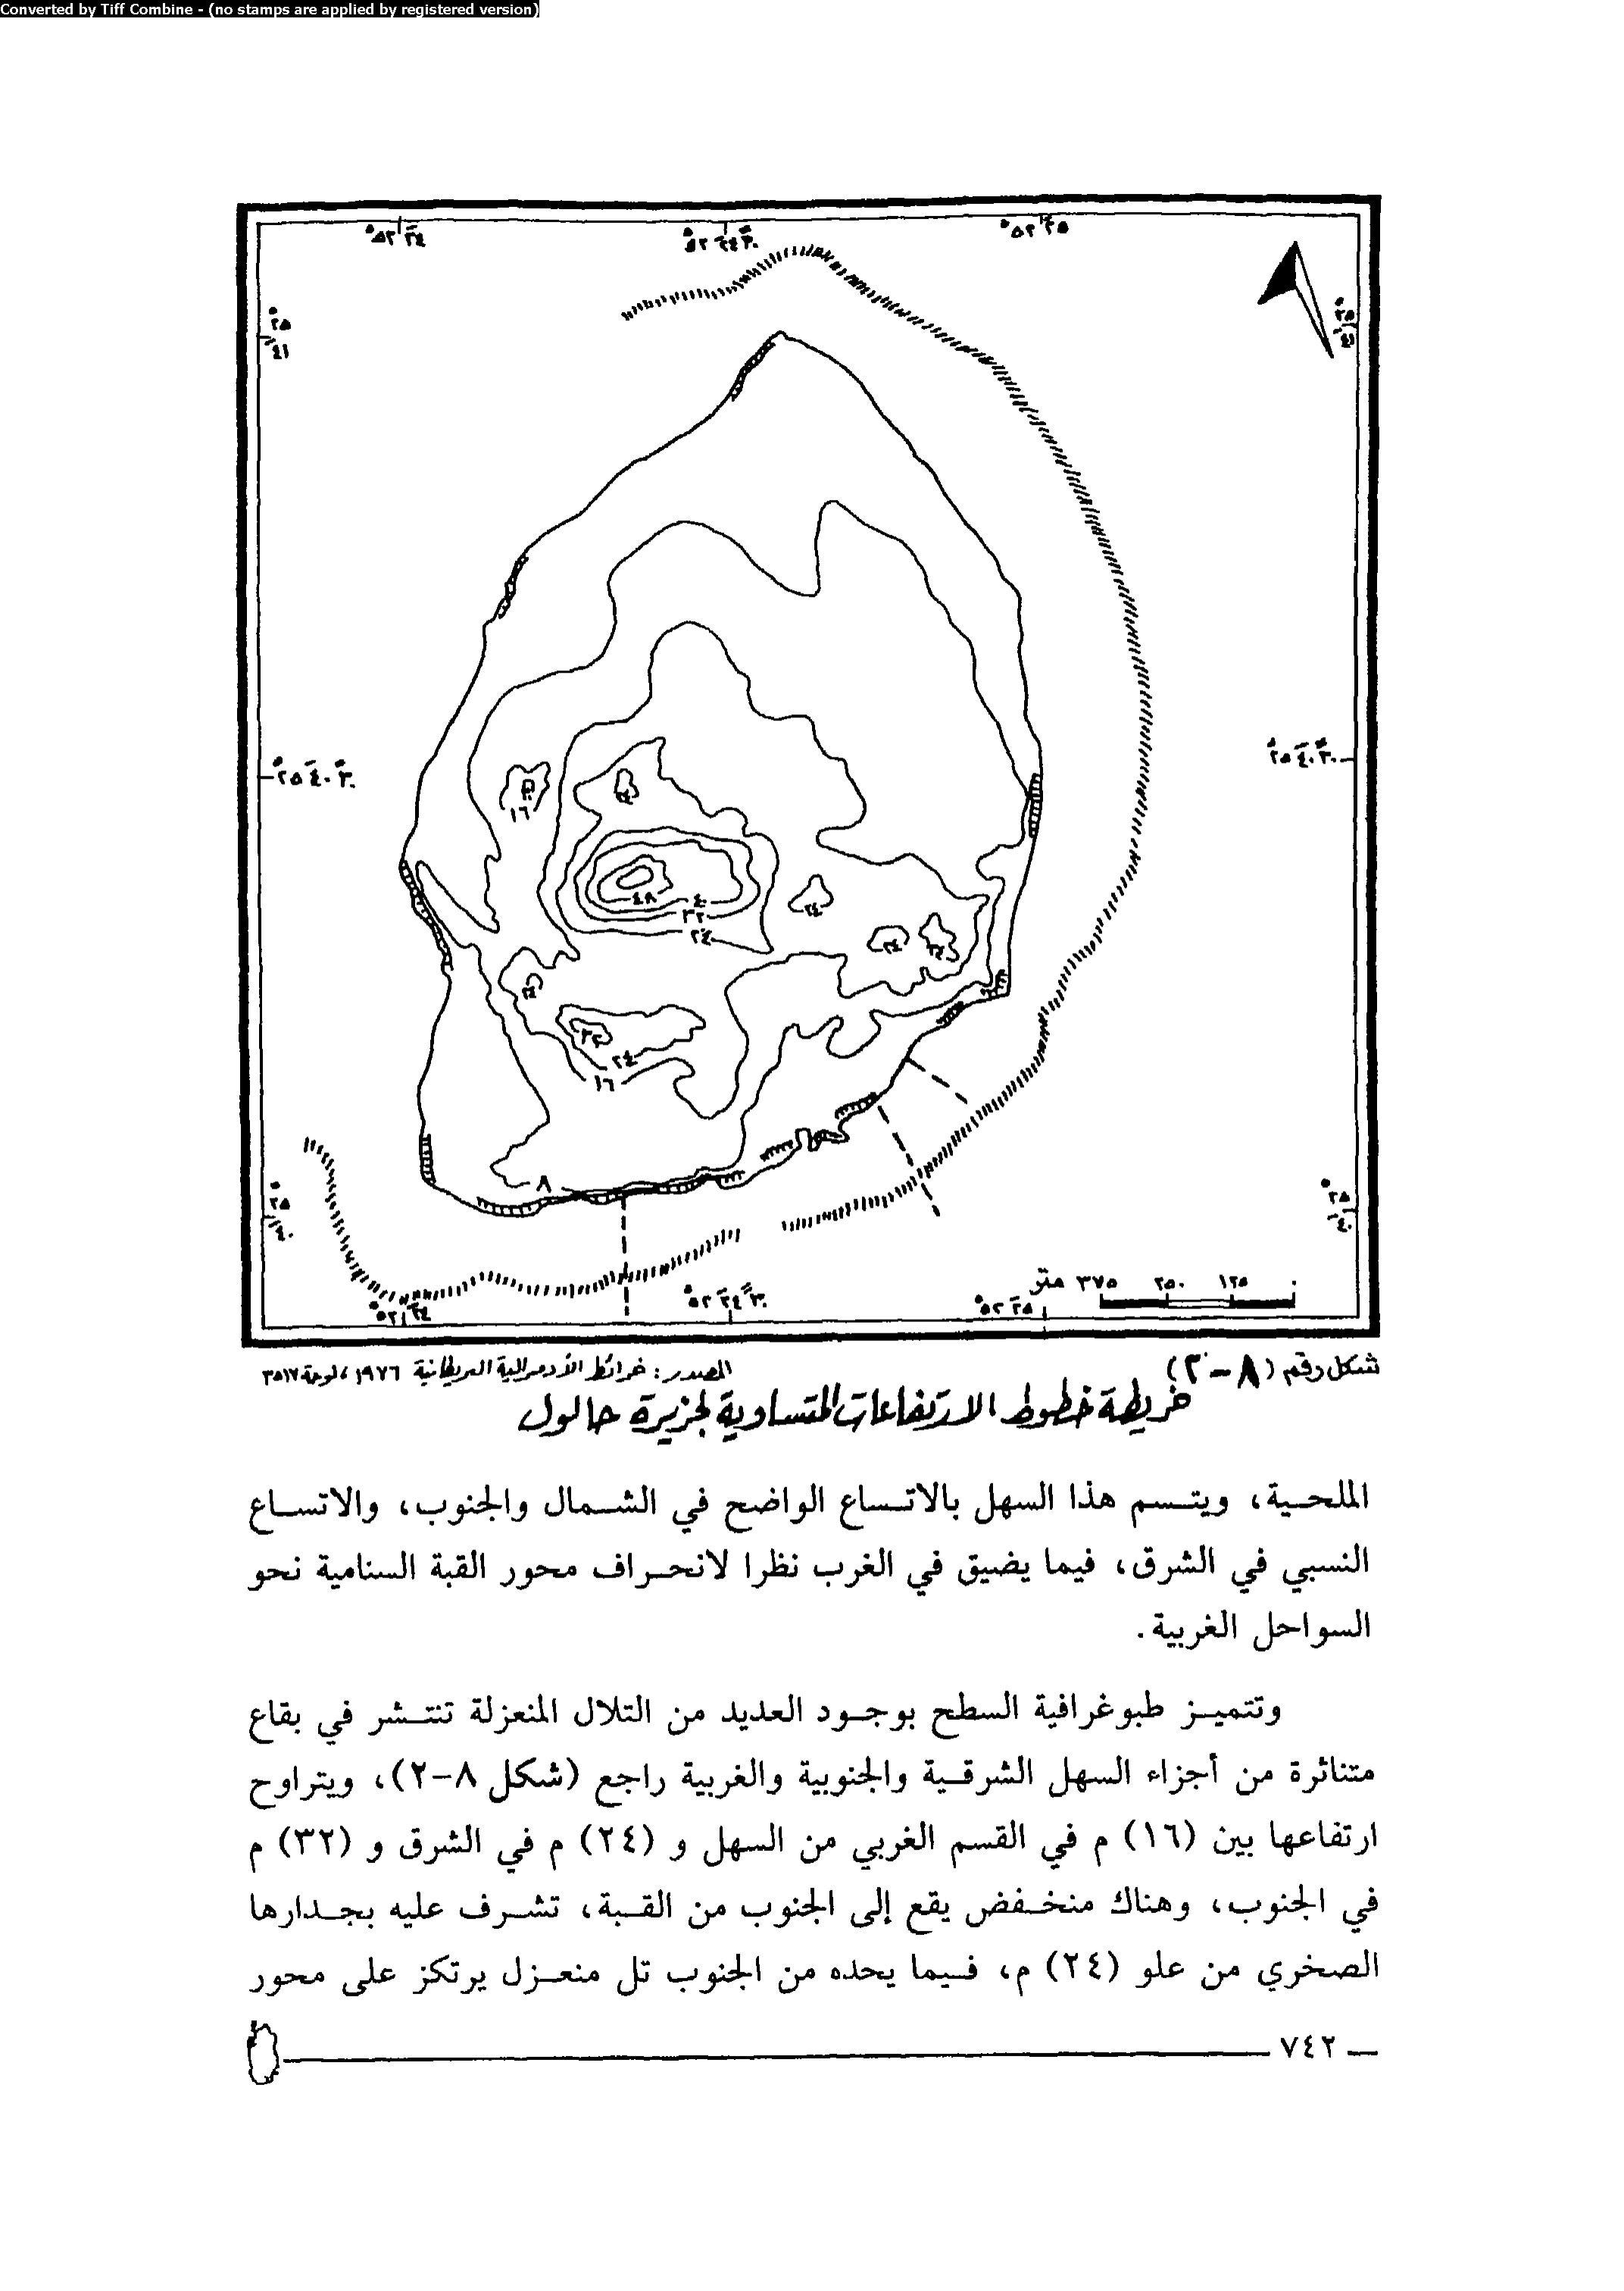 Converted by Tiff Combine - (no stamps are applied by registered version)
٥٢° ٢٤َ
٥٢° ٢٤َ ٣٠ً
٥٢° ٢٥َ
٢٥°
٤١َ
٢٥°
٤١َ
٢٥° ٤٠َ ٣٠ً
٢٥° ٤٠َ ٣٠ً
١٦
٤٨
٤٠
٣٢
٢٤
٢٤
٢٤
٣٢
٢٤
١٦
٨
٢٥°
٤٠َ
٢٥°
٤٠َ
٠ ١٢٥ ٢٥٠ ٣٧٥ متر
٥٢° ٢٤َ
٥٢° ٢٤َ ٣٠ً
٥٢° ٢٥َ
شكل رقم (٨-٢)
المصدر: خرائط الأدميرالية البريطانية ١٩٧٦، لوحة ٣٥١٧
خريطة خطوط الارتفاعات المتساوية لجزيرة حالول
الملحية، ويتسم هذا السهل بالاتساع الواضح في الشمال والجنوب، والاتساع
النسبي في الشرق، فيما يضيق في الغرب نظرا لانحراف محور القبة السنامية نحو
السواحل الغربية.
وتتميز طبوغرافية السطح بوجود العديد من التلال المنعزلة تنتشر في بقاع
متناثرة من أجزاء السهل الشرقية والجنوبية والغربية راجع (شكل ٨-٢)، ويتراوح
ارتفاعها بين (١٦) م في القسم الغربي من السهل و (٢٤) م في الشرق و (٣٢) م
في الجنوب، وهناك منخفض يقع إلى الجنوب من القبة، تشرف عليه بجدارها
الصخري من علو (٢٤) م، فيما يحده من الجنوب تل منعزل يرتكز على محور
٧٤٢